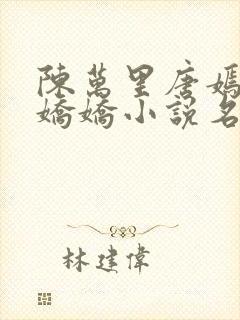 陳萬里唐嫣
嬌嬌小說名
林建偉